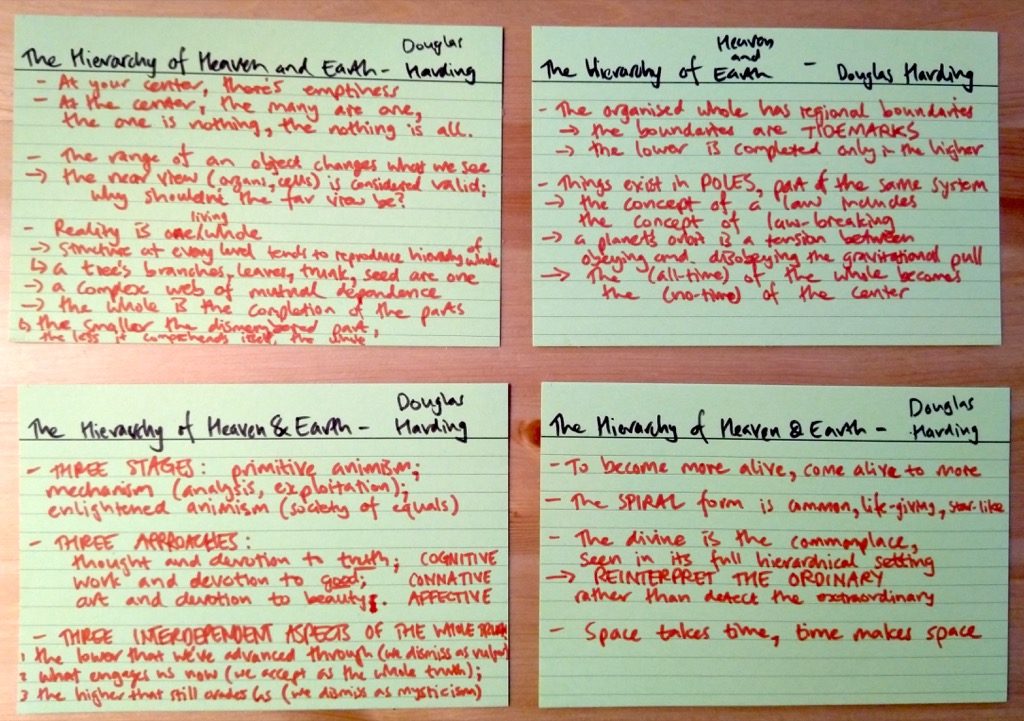 Douglas
The Hierarchy of Heaven and Earth - Harding
- At your center, there's emptiness
- At the center, the many are one,
the one is nothing, the nothing is all.
- The range of an object changes what we see
→ the near view (organs, cells) is considered valid;
why shouldn't the far view be?
living
- Reality is one/whole
→ structure at every level tends to reproduce hierarchy of whole
↳ a tree's branches, leaves, trunk, seed are one
→ a complex web of mutual dependence
→ the whole is the completion of the parts
↳ the smaller the dismembered part,
the less it comprehends itself, the whole
Heaven
and
The Hierarchy of Earth - Douglas Harding
- The organised whole has regional boundaries
→ the boundaries are TIDEMARKS
→ the lower is completed only in the higher
- Things exist in POLES, part of the same system
→ the concept of a law includes
the concept of law-breaking
→ a planet's orbit is a tension between
obeying and disobeying the gravitational pull
→ The (all-time) of the whole becomes
the (no-time) of the center
Douglas
The Hierarchy of Heaven & Earth - Harding
- THREE STAGES: primitive animism;
mechanism (analysis, exploitation);
enlightened animism (society of equals)
- THREE APPROACHES:
thought and devotion to truth; COGNITIVE
work and devotion to good; CONNATIVE
art and devotion to beauty. AFFECTIVE
- THREE INTERDEPENDENT ASPECTS OF THE WHOLE TRUTH
1 the lower that we've advanced through (we dismiss as vulgar)
2 what engages us now (we accept as the whole truth);
3 the higher that still evades us (we dismiss as mysticism)
Douglas
The Hierarchy of Heaven & Earth - Harding
- To become more alive, come alive to more
- The SPIRAL form is common, life-giving, star-like
- The divine is the commonplace,
seen in its full hierarchical setting
→ REINTERPRET THE ORDINARY
rather than detect the extraordinary
- Space takes time, time makes space